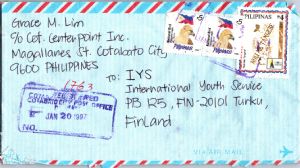 Grace M. Lim
% Cot. Centerpoint Inc.
Magallanes St. Cotabato City
9600 PHILIPPINES
TO: IYS
International Youth Service
PB 125, FIN-20101 Turku,
Finland
1763
REGISTERED
COTABATO CITY POST OFFICE
JAN 20 1997
NO.
PILIPINAS
VIA AIR MAIL